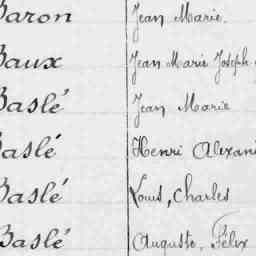 Baron Jean Marie.
Baux Jean Marie Joseph
Baslé Jean Marie
Baslé Henri Alexan
Baslé Louis, Charles
Baslé Auguste, Félix